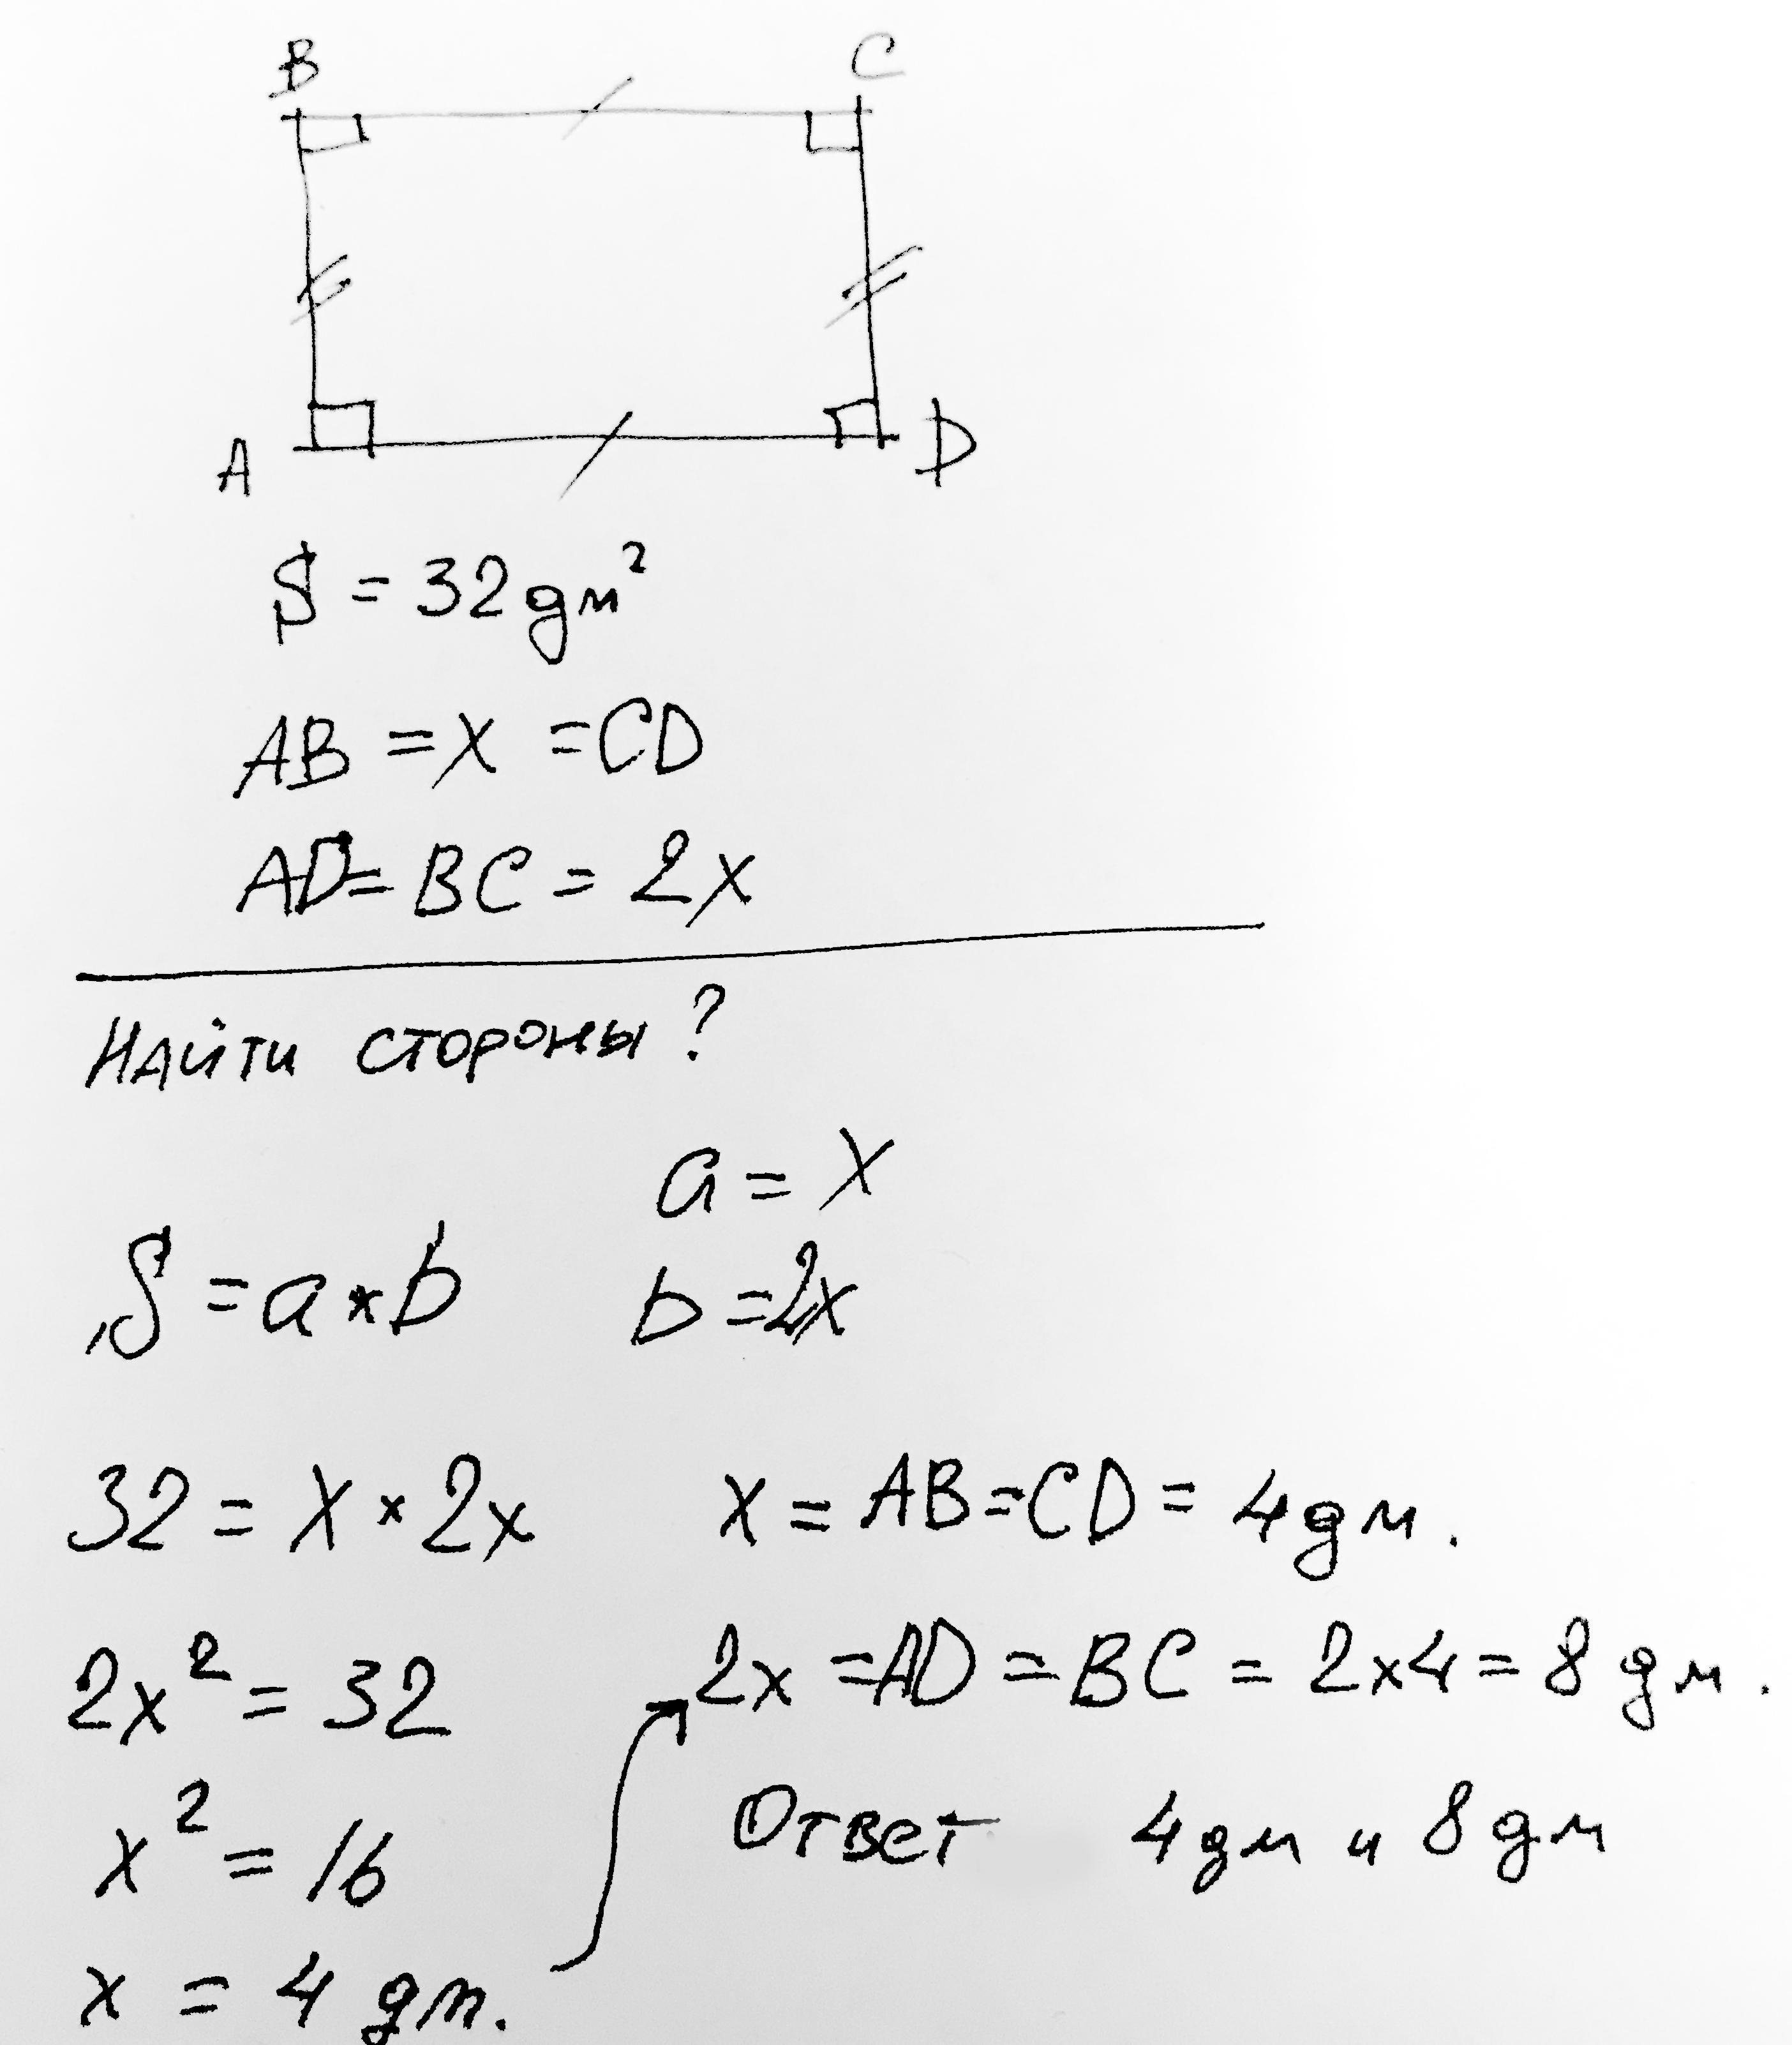 B C
A D
S = 32 дм²
AB = x = CD
AD = BC = 2x
Найти стороны?
a = x
S = a * b
b = 2x
32 = x * 2x
x = AB = CD = 4 дм.
2x² = 32
2x = AD = BC = 2x4 = 8 дм.
x² = 16
Ответ 4 дм и 8 дм
x = 4 дм.